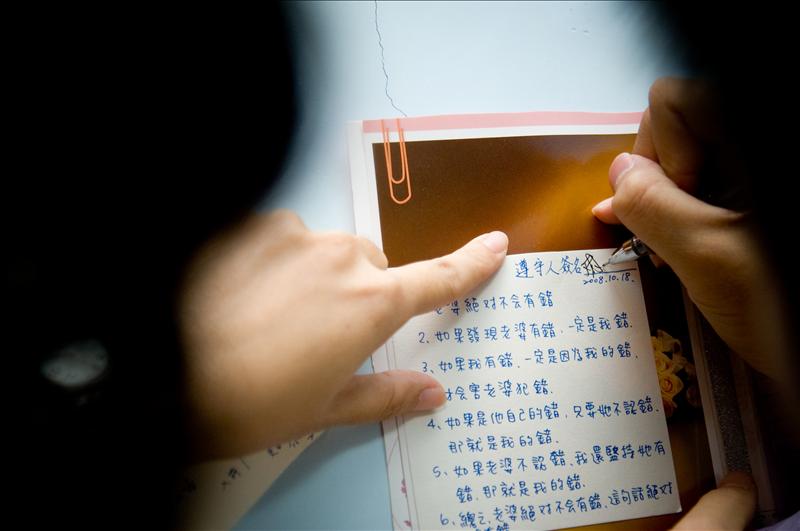 遵守人簽名
2008.10.18.
老婆絕对不会有錯
2、如果發現老婆有錯、一定是我錯.
3、如果我有錯、一定是因為我的錯、
才会害老婆犯錯.
4、如果是他自己的錯、只要她不認錯.
那就是我的錯.
5、如果老婆不認錯、我還堅持她有
錯、那就是我的錯.
6、總之、老婆絕对不会有錯、這句話絕对